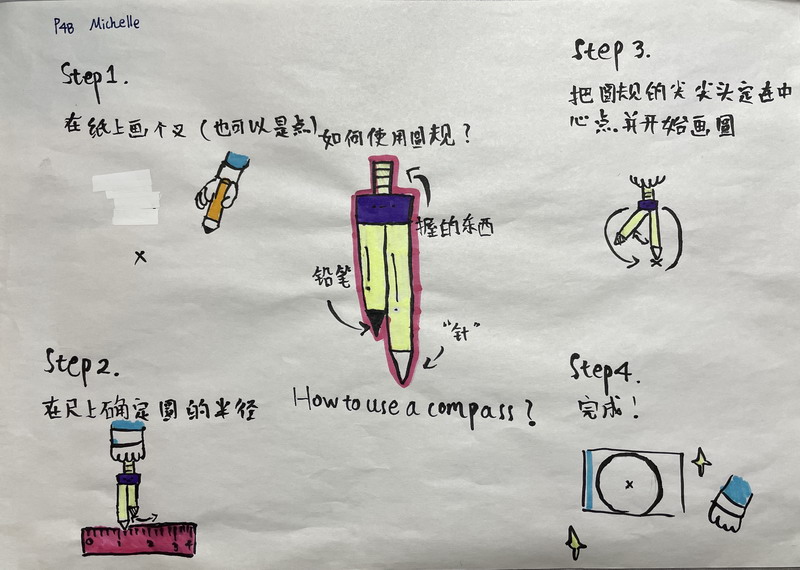 P4B Michelle
Step 1.
在纸上画个叉（也可以是点）
如何使用圆规？
握的东西
铅笔
"针"
How to use a compass?
Step 2.
在尺上确定圆的半径
0 1 2 3 4
Step 3.
把圆规的尖尖头定在中
心点.并开始画圆
Step 4.
完成！